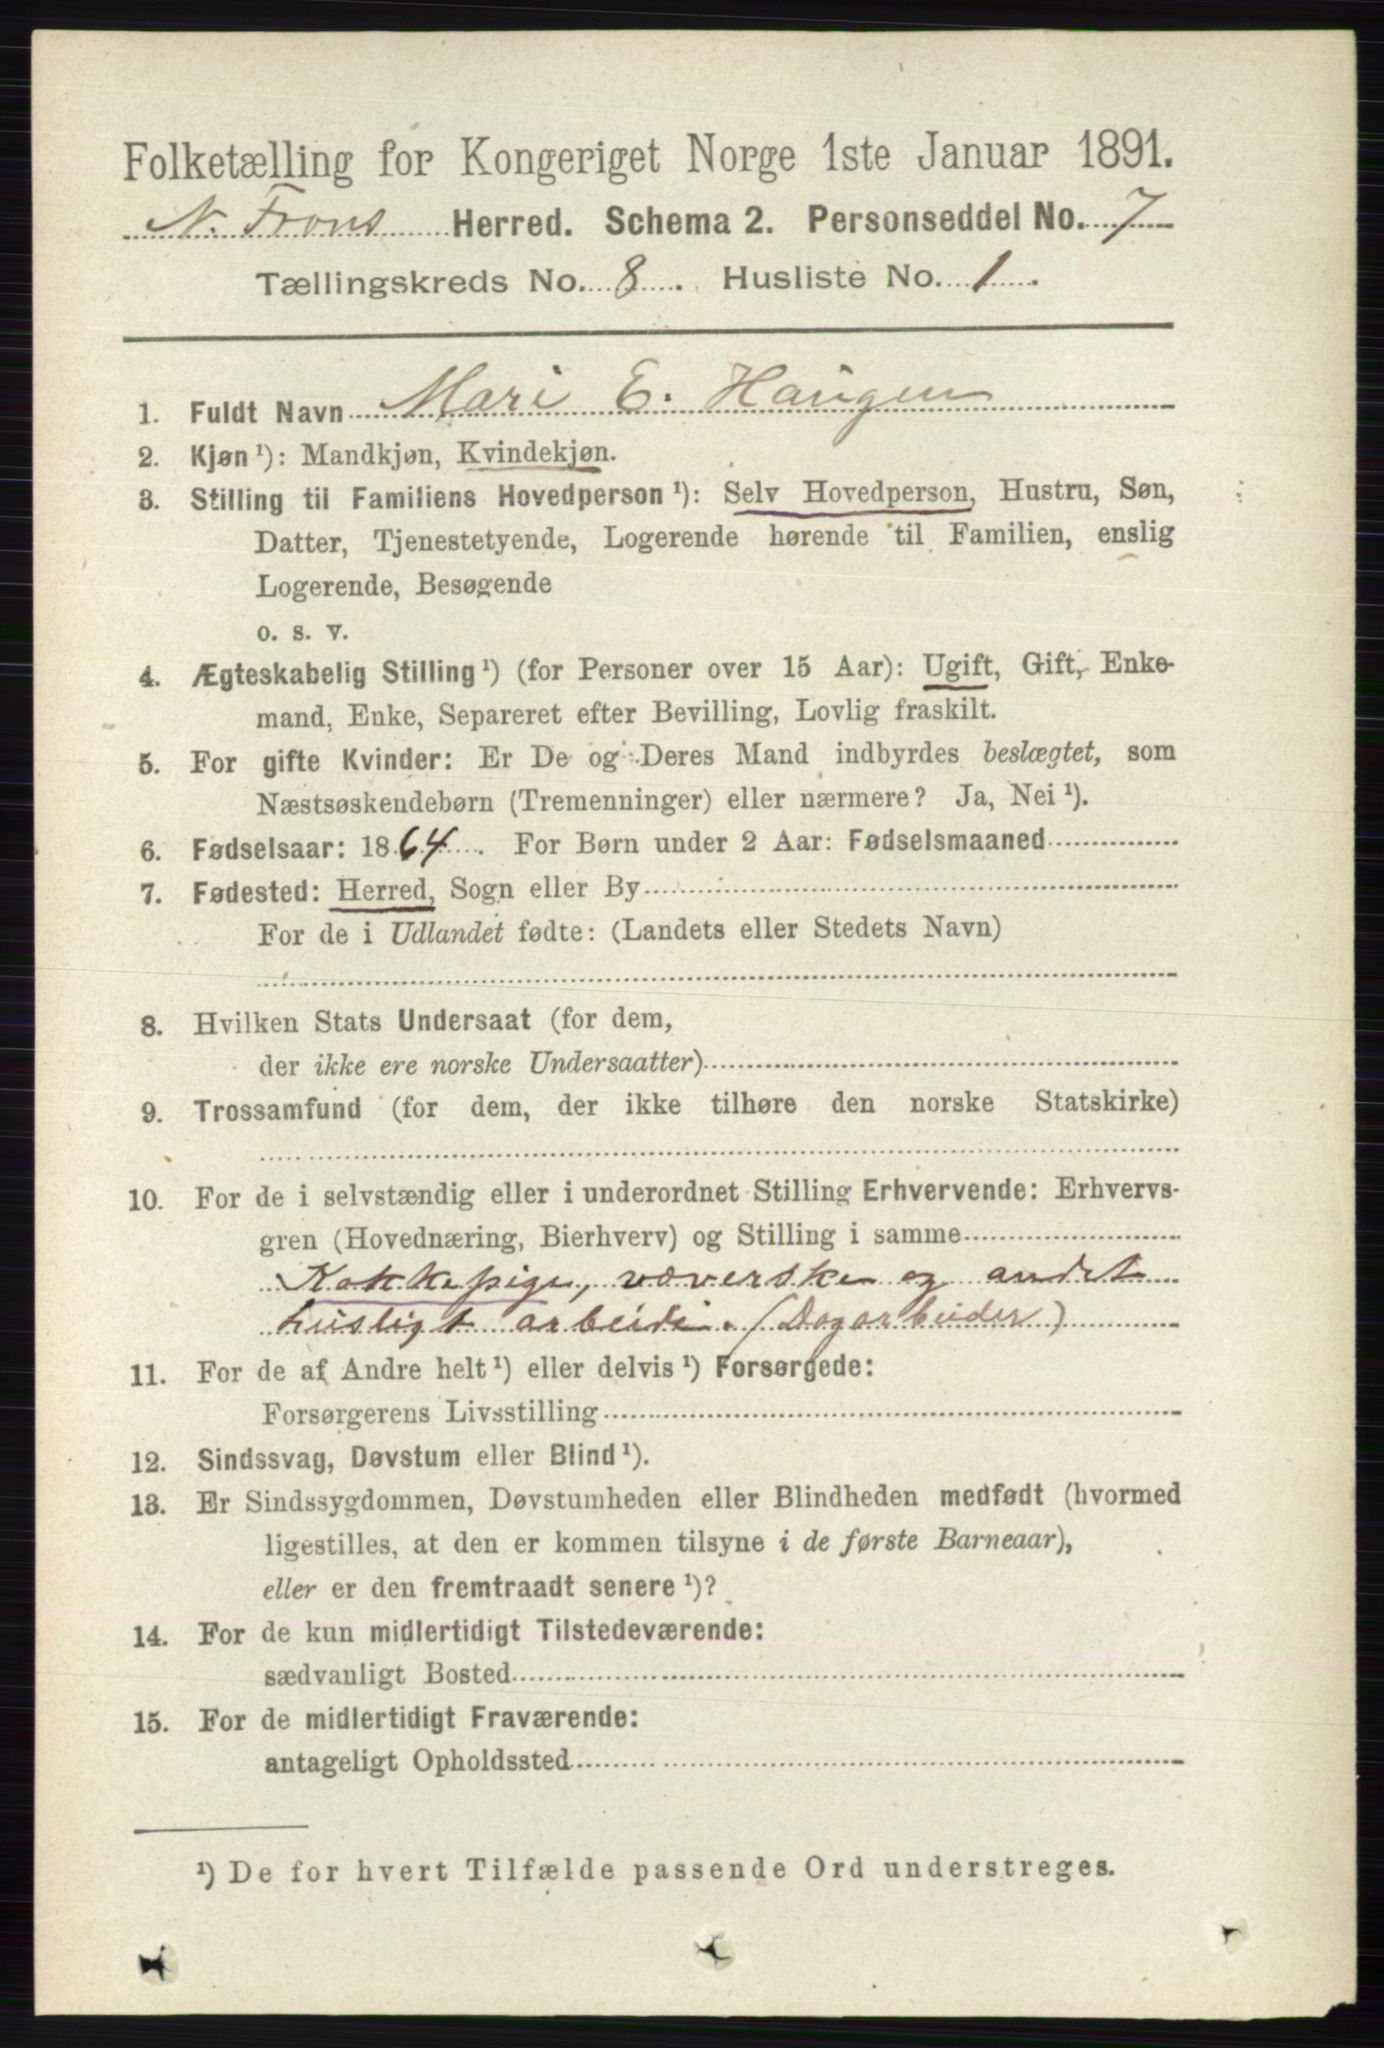 Folketælling for Kongeriget Norge 1ste Januar 1891.
N. Frons Herred. Schema 2. Personseddel No. 7
Tællingskreds No. 8. Husliste No. 1.
1. Fuldt Navn Mari E. Haugen
2. Kjøn¹): Mandkjøn, Kvindekjøn.
3. Stilling til Familiens Hovedperson¹): Selv Hovedperson, Hustru, Søn,
Datter, Tjenestetyende, Logerende hørende til Familien, enslig
Logerende, Besøgende
o. s. v.
4. Ægteskabelig Stilling¹) (for Personer over 15 Aar): Ugift, Gift, Enke-
mand, Enke, Separeret efter Bevilling, Lovlig fraskilt.
5. For gifte Kvinder: Er De og Deres Mand indbyrdes beslægtet, som
Næstsøskendebørn (Tremenninger) eller nærmere? Ja, Nei¹).
6. Fødselsaar: 1864. For Børn under 2 Aar: Fødselsmaaned
7. Fødested: Herred, Sogn eller By
For de i Udlandet fødte: (Landets eller Stedets Navn)
8. Hvilken Stats Undersaat (for dem,
der ikke ere norske Undersaatter)
9. Trossamfund (for dem, der ikke tilhøre den norske Statskirke)
10. For de i selvstændig eller i underordnet Stilling Erhvervende: Erhvervs-
gren (Hovednæring, Bierhverv) og Stilling i samme
Kokkepige, væverske og andet
husligt arbeide. (Dagarbeider)
11. For de af Andre helt¹) eller delvis¹) Forsørgede:
Forsørgerens Livsstilling
12. Sindssvag, Døvstum eller Blind¹).
13. Er Sindssygdommen, Døvstumheden eller Blindheden medfødt (hvormed
ligestilles, at den er kommen tilsyne i de første Barneaar),
eller er den fremtraadt senere¹)?
14. For de kun midlertidigt Tilstedeværende:
sædvanligt Bosted
15. For de midlertidigt Fraværende:
antageligt Opholdssted
¹) De for hvert Tilfælde passende Ord understreges.